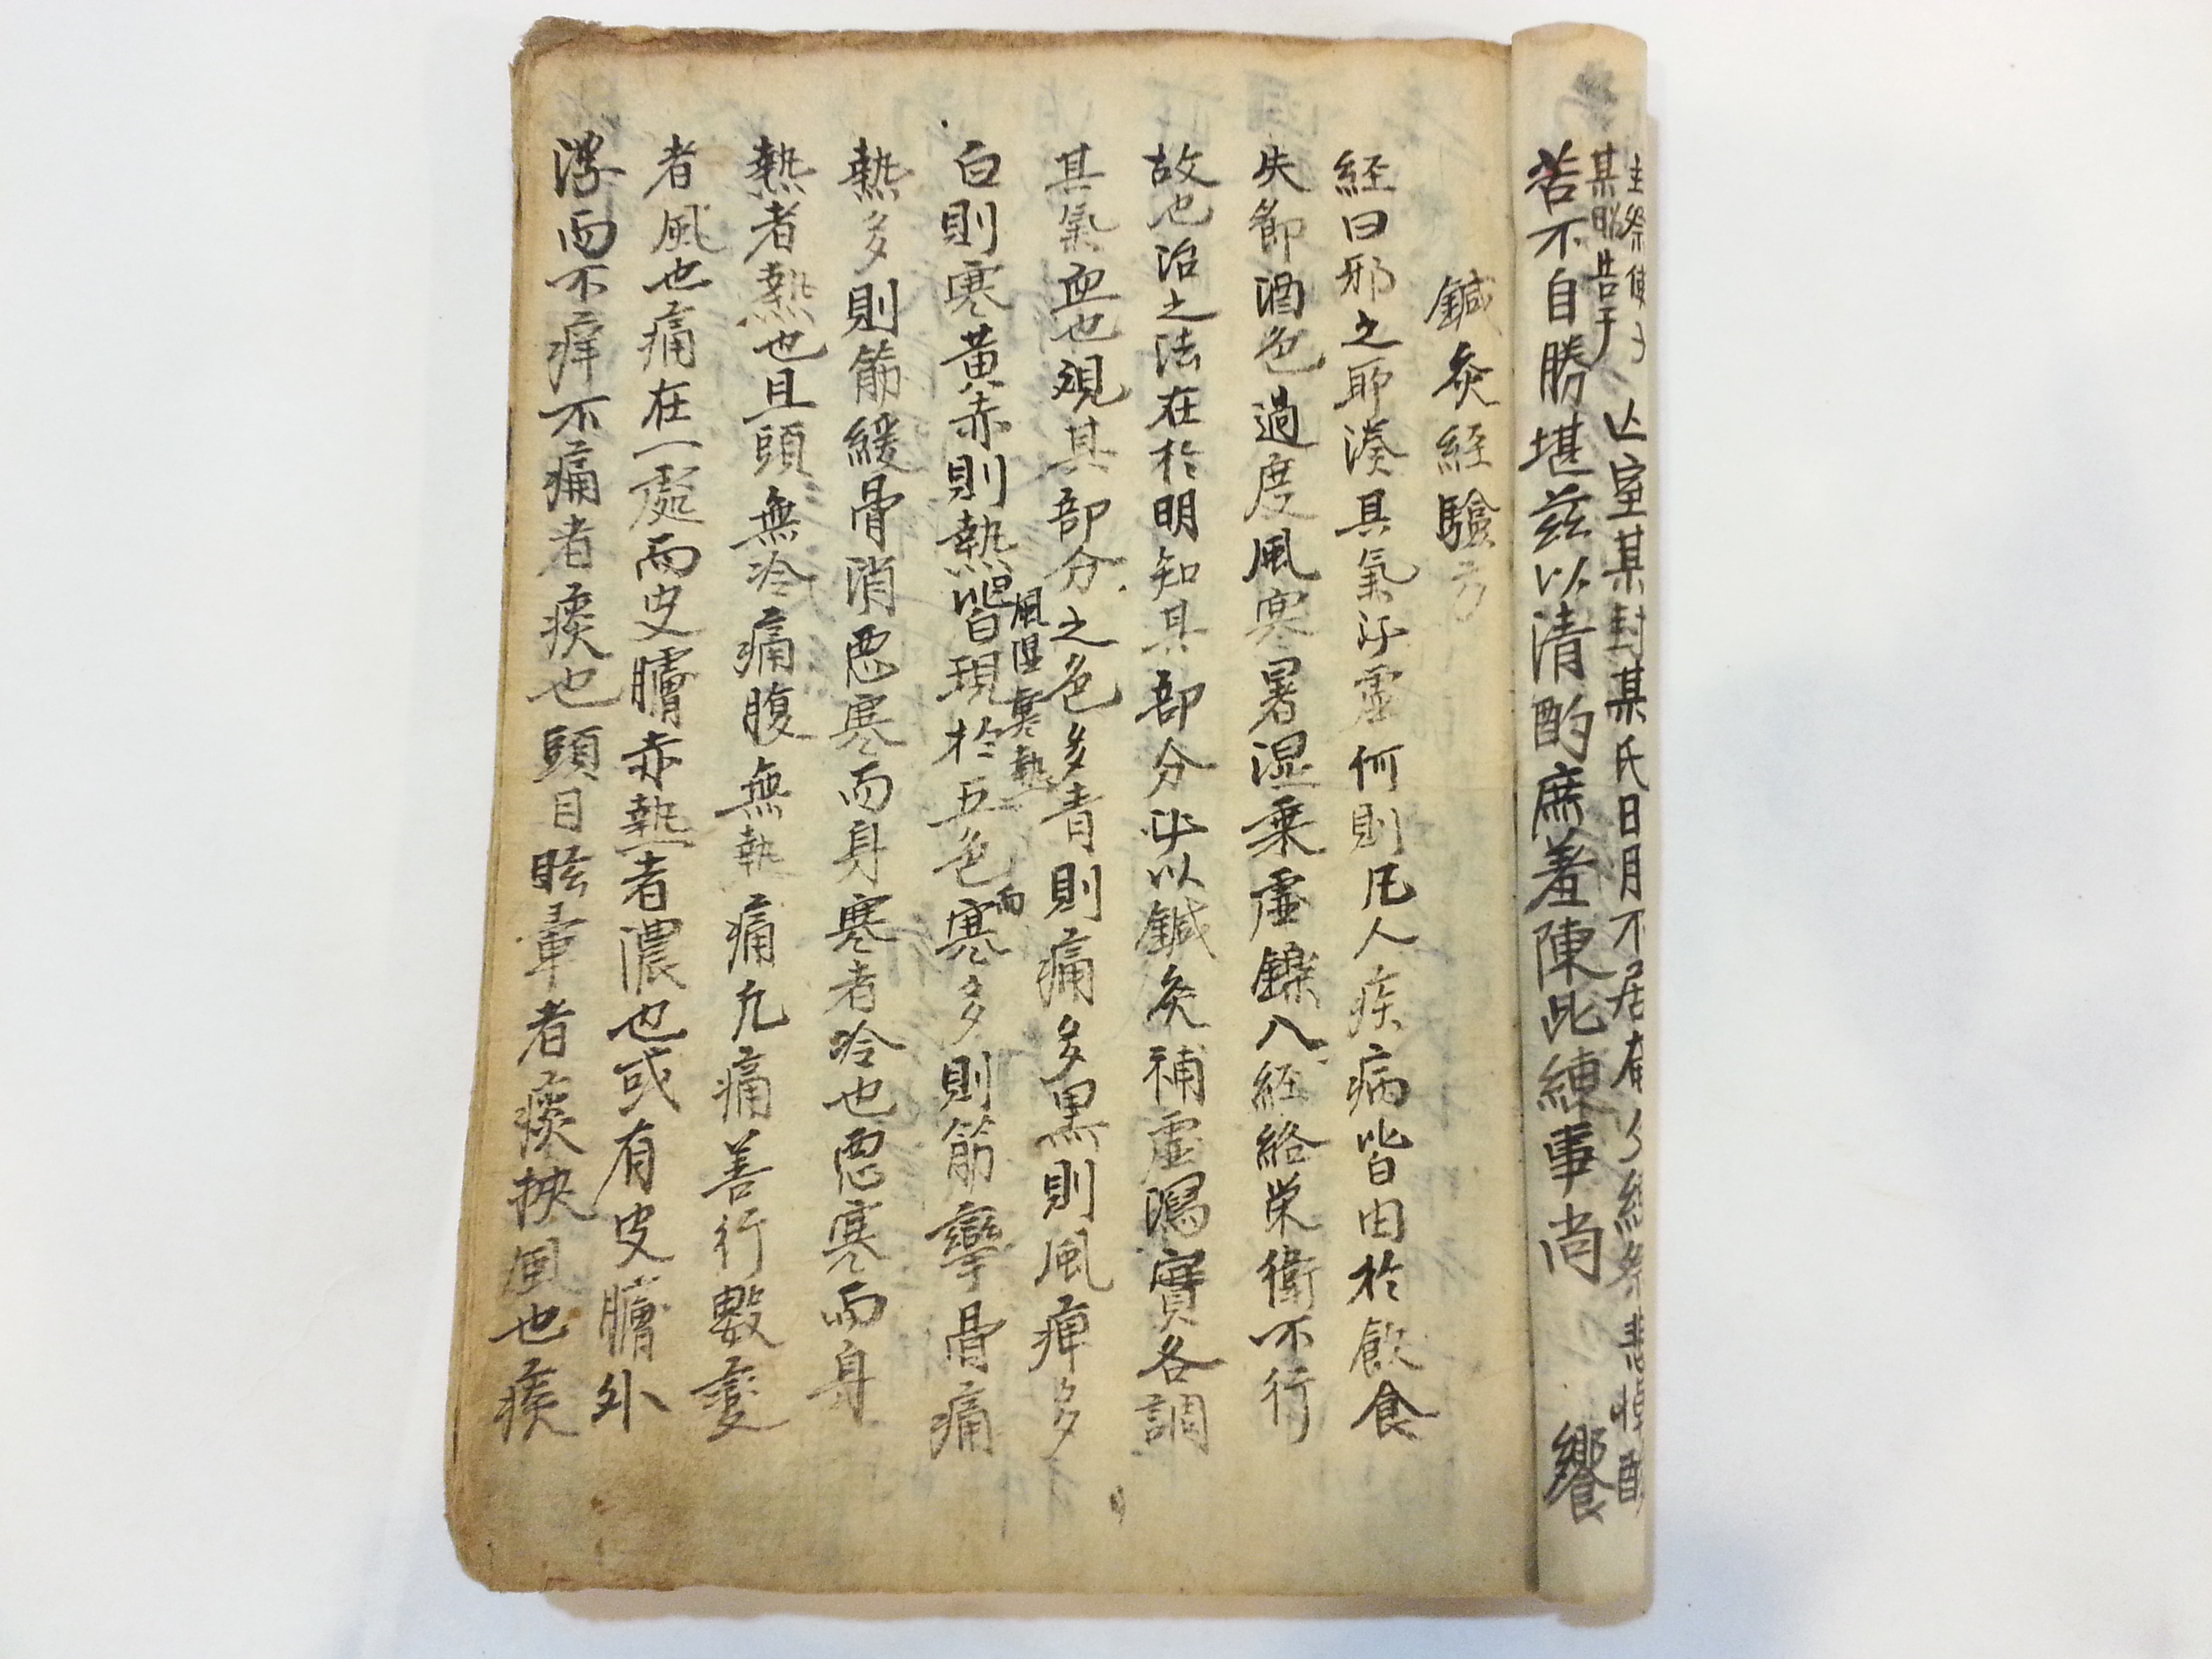 亡室某封某氏日月不居奄
苦不自勝堪玆以清酌庶羞陳此練事尚 饗
鍼灸経驗方
経曰邪之所湊其氣必虛何則凡人疾病皆由於飲食
失節酒色過度風寒暑湿乗虛鑠入経絡栄衛不行
故也治之法在於明知其部分必以鍼灸補虛瀉實各調
其氣血也觀其部分之色多青則痛多黒則風痺多
白則寒黃赤則熱皆現於五色寒多則筋攣骨痛
風湿寒熱
而
熱多則筋緩骨消惡寒而身寒者冷也惡寒而身
熱者熱也且頭無冷痛腹無熱痛凡痛善行數變
者風也痛在一處而皮膚赤熱者濃也或有皮膚外
浮而不痒不痛者痰也頭目眩暈者痰挾風也痰